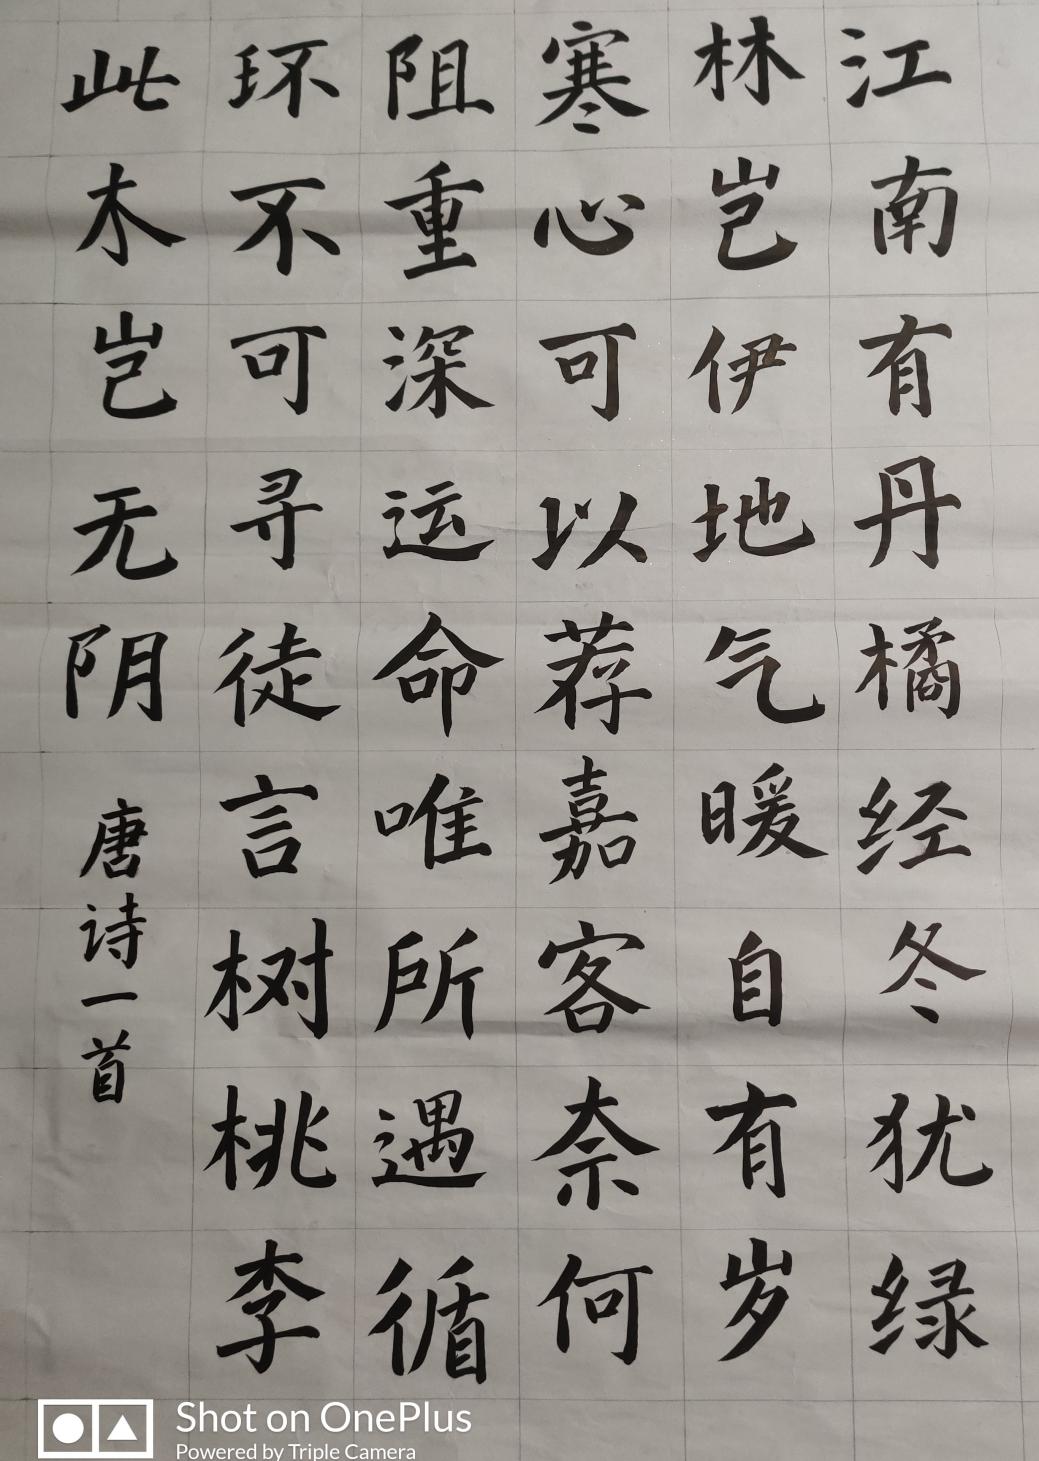 江南有丹橘经冬犹绿
林岂伊地气暖自有岁
寒心可以荐嘉客奈何
阻重深运命唯所遇循
环不可寻徒言树桃李
此木岂无阴
唐诗一首
Shot on OnePlus
Powered by Triple Camera